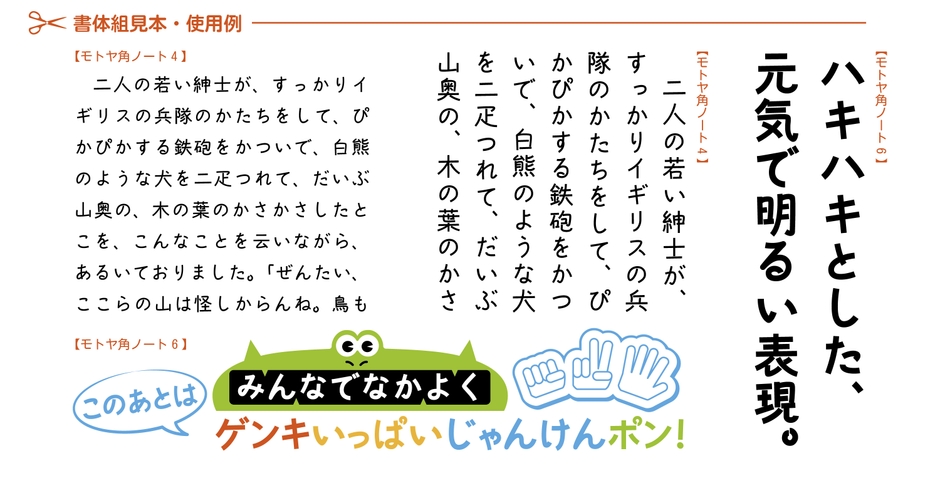 書体組見本・使用例
【モトヤ角ノート6】
ハキハキとした、
元気で明るい表現。
【モトヤ角ノート4】
二人の若い紳士が、
すっかりイギリスの兵
隊のかたちをして、ぴ
かぴかする鉄砲をかつ
いで、白熊のような犬
を二疋つれて、だいぶ
山奥の、木の葉のかさ
【モトヤ角ノート4】
二人の若い紳士が、すっかりイ
ギリスの兵隊のかたちをして、ぴ
かぴかする鉄砲をかついで、白熊
のような犬を二疋つれて、だいぶ
山奥の、木の葉のかさかさしたと
こを、こんなことを云いながら、
あるいておりました。「ぜんたい、
ここらの山は怪しからんね。鳥も
【モトヤ角ノート6】
このあとは
みんなでなかよく
ゲンキいっぱいじゃんけんポン!